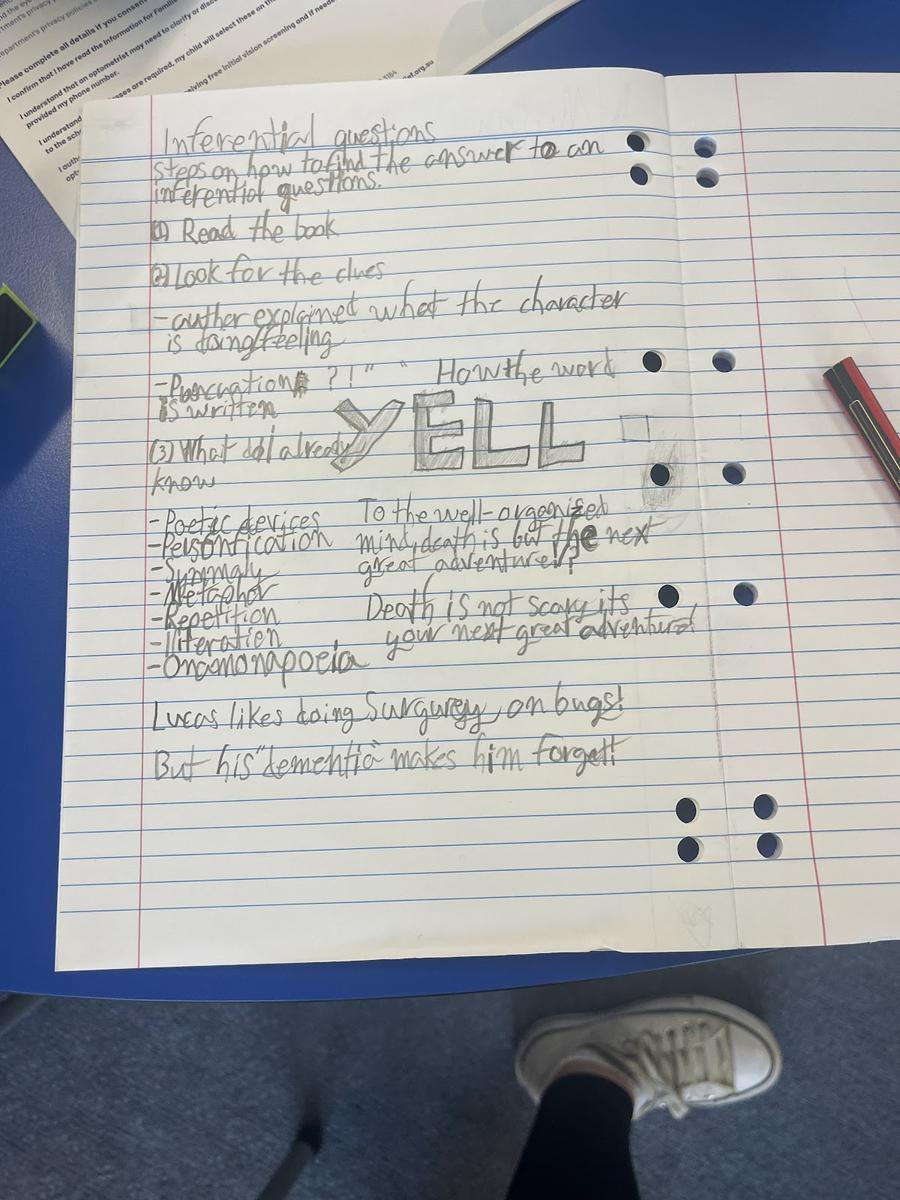 and the eye
artment's privacy
epartment's privacy policies
Please complete all details if you consent
I confirm that I have read the Information for Famili
I understand that an optometrist may need to clarify or disc
provided my phone number.
I understand
sses are required, my child will select these on th
to the sch
olving free initial vision screening and if neede
I autho
opt
et.org.au
Inferential questions
steps on how to find the answer to an
inferential questions.
(1) Read the book
(2) Look for the clues
- auther explained what the character
is doing/feeling
- Puncuation ? ! " " How the word
is written
YELL
(3) What do I already
know
- Poetic devices
- Personfication
- Symmaly
- Metaphor
- Repetition
- Illiteration
- Onamonapoeia
To the well-organised
mind, death is but the next
great adventure!?
Death is not scary its
your next great adventure!
Lucas likes doing Surgurey on bugs!
But his "dementia" makes him forget!